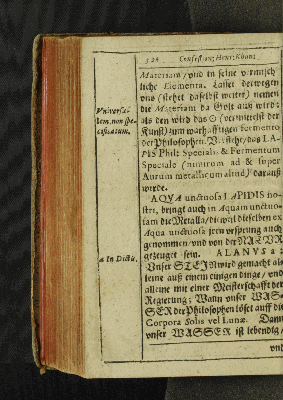 528 Confessio Henr: Kühn:
Materiam / vnd in seine vermisch
liche Elementa. Lasset derwegen
vns (stehet daselbst weiter) nemen
die Materiam da Golt aus wird:
als den wird das ☉ (vermittelst der
Kunst) zum warhafftigen fermento
der Philosophen. Verstehe / das LA-
PIS Phil: Specialis & Fermentum
Speciale (nimirum ad & super
Aurum metallicum aliud) darauß
werde.
AQVA unctuosa LAPIDIS no-
stri, bringt auch in Aquam unctuo-
sam die Metalla / dieweil dieselben ex
Aqua unctuosa jren vrsprung auch
genommen / vnd von der NATVR
gezeuget sein. ALANVS a:
Vnser STEIN wird gemacht al-
leine auß einem einigen dinge / vnd
alleine mit einer Meisterschafft der
Regierung; Wann vnser WAS-
SER der Philosophen löset auff die
Corpora Solis vel Lunæ. Dann
vnser WASSER ist lebendig /
vnd
Vniversa-
lem, non spe-
cificatum.
a In Dictis.